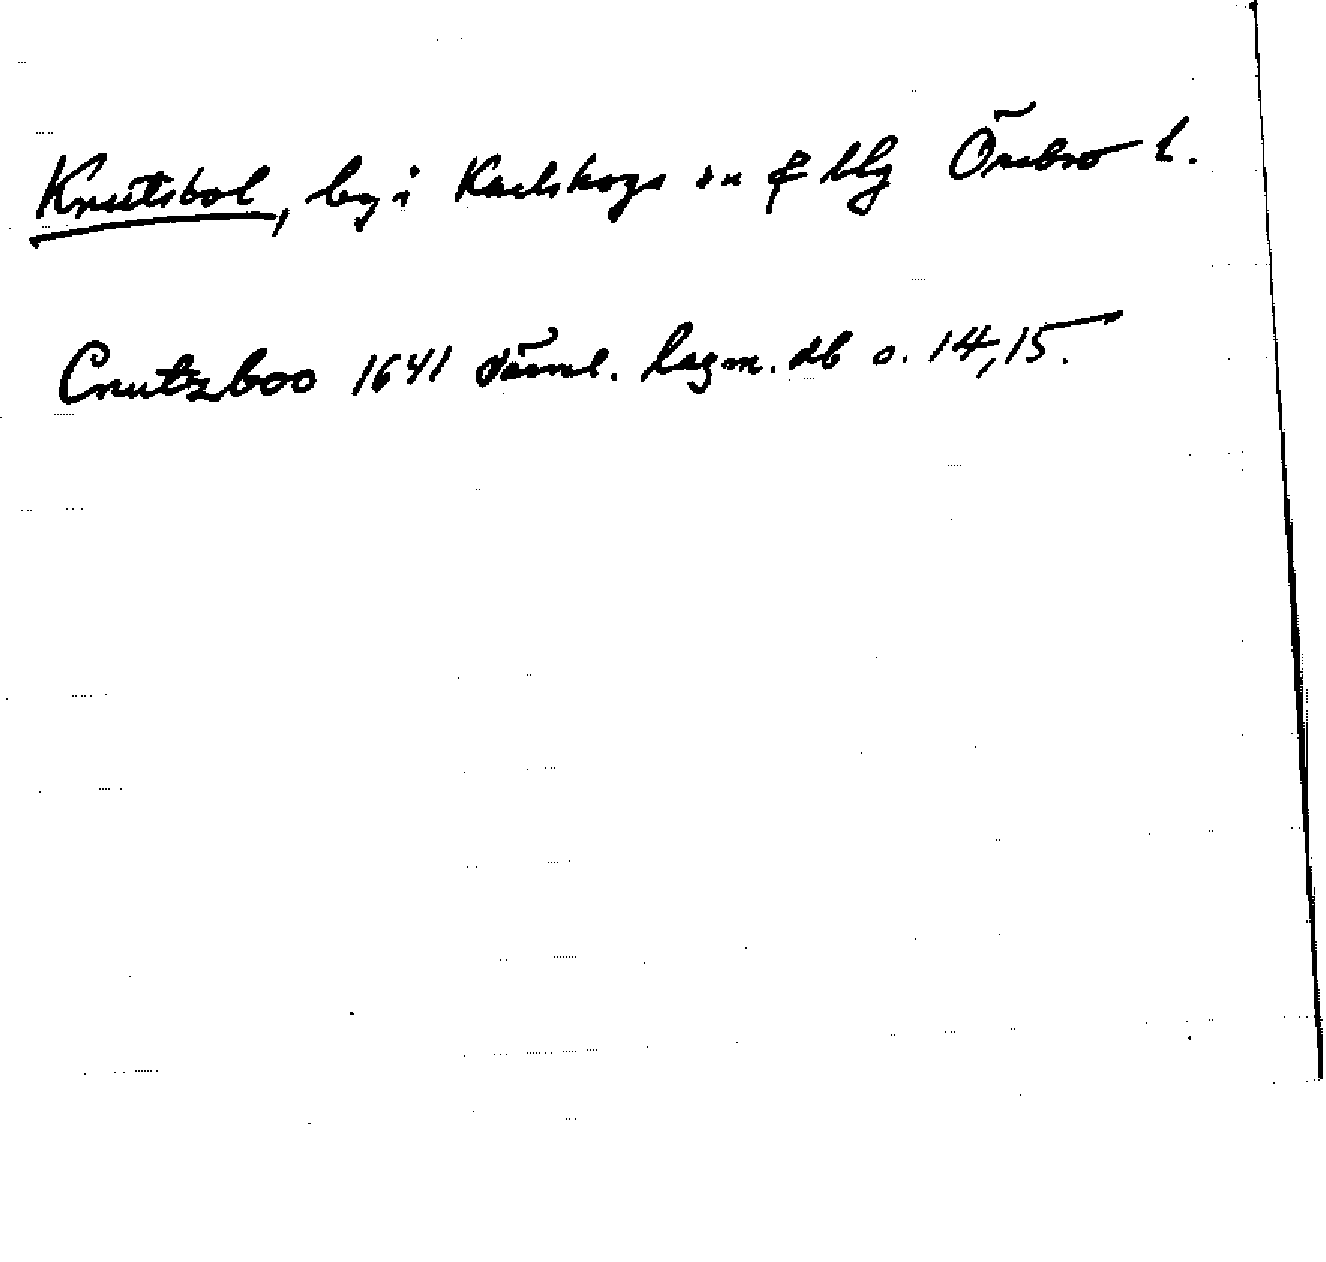 Knutsbol, by i Karlskoga sn o blg Örebro l.
Cnutzboo 1641 Värml. lagm. db s. 14, 15.